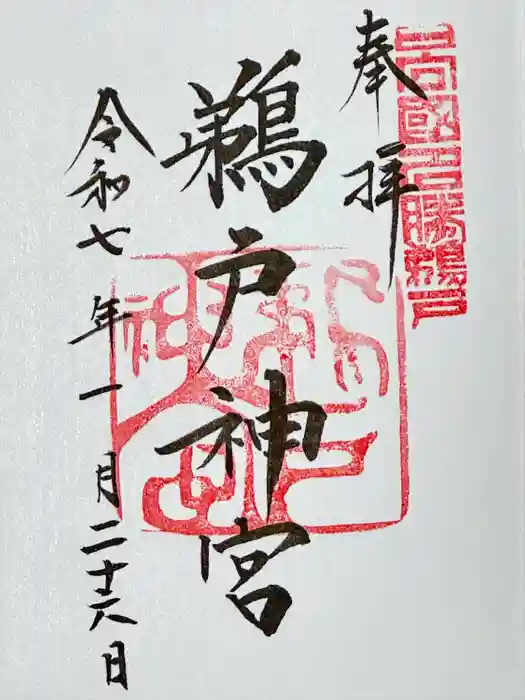 奉拝
日向國名勝鵜戸
鵜戸神宮
令和七年一月二十六日